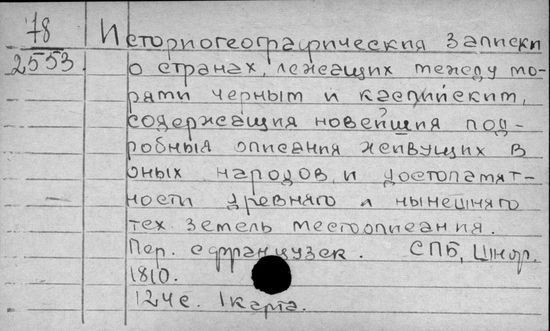 78
2553.
Историогеографическия записки
о странах, лежащих между мо-
рями черным и каспийским,
содержащия новейшия под-
робныя описания живущих в
оных народов, и достопамят-
ности древняго и нынешняго
тех земель местоописания.
Пер. с французск. СПБ, Шнор.
1810.
124 с. 1 карта.